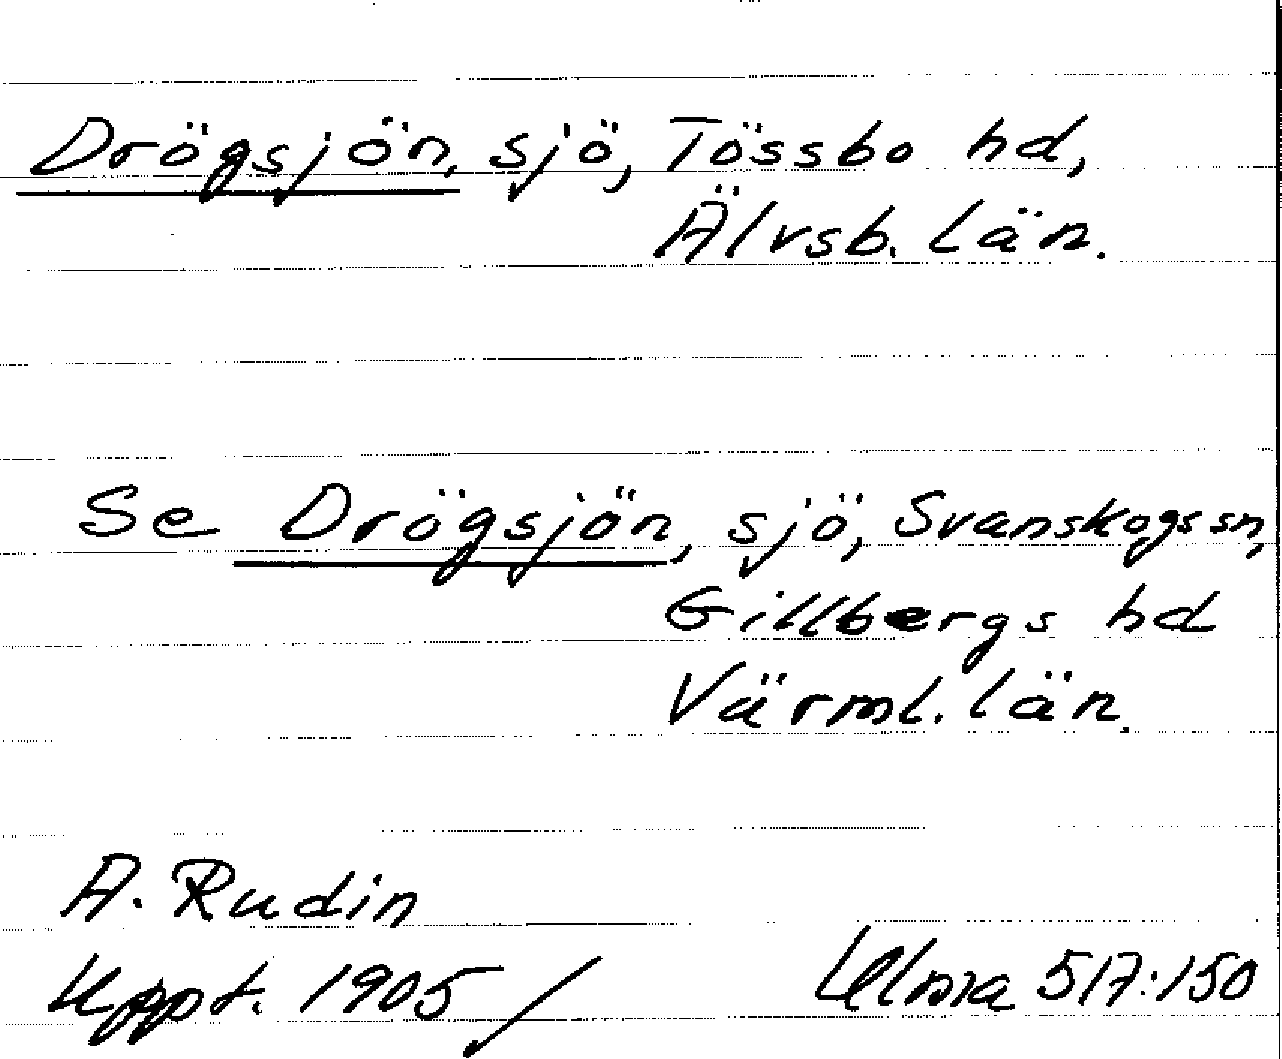 Drögsjön, sjö, Tössbo hd,
Älvsb. län.
Se Drögsjön, sjö, Svanskogs sn,
Gillbergs hd
Värml. län.
A. Rudin
Uppt. 1905 /
Ulma 517:150